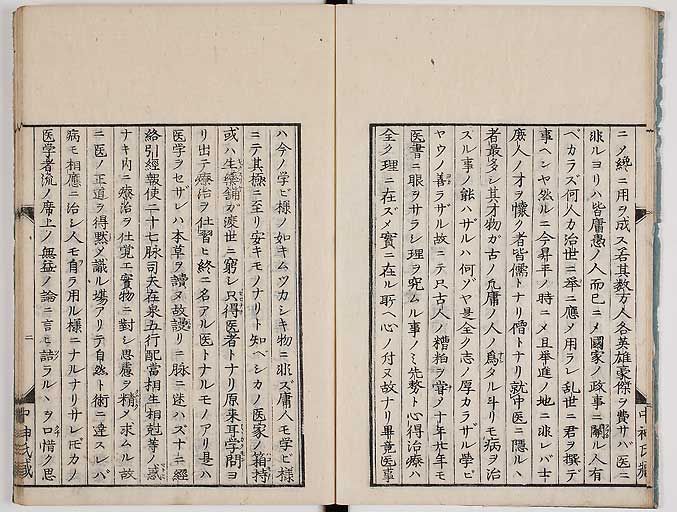 ニメ纔ニ用ヲ成ス若其数万人各英雄豪傑ヲ費サバ医ニ
非ルヨリハ皆庸愚ノ人而已ニメ國家ノ政事ニ關ル人有
ベカラズ何人カ治世ニ挙ニ應メ用ラレ乱世ニ君ヲ撰デ
事ヘンヤ然ルニ今昇平ノ時ニメ且挙進ノ地ニ非レバ士
庶人ノ才ヲ懐ク者皆儒トナリ僧トナリ就中医ニ隠ルヽ
者最多シ其才物ガ古ノ凡庸ノ人ノ為タル斗リモ病ヲ治
スル事ノ能ハザルハ何ゾヤ是全ク志ノ厚カラザル学ビ
ヤウノ善ラザル故ニテ只古人ノ糟粕ヲ甞メ十年廿年モ
医書ニ眼ヲサラシ理ヲ究ムル事ノミ先務ト心得治療ハ
全ク理ニ在ズメ實ニ在ル所ヘ心ノ付ヌ故ナリ畢竟医事
中神氏
ハ今ノ学ビ様ノ如キムツカシキ物ニ非ズ庸人モ学ビ様
ニテ其極ニ至リ安キモノナリト知ベシカノ医家ノ箱持
或ハ生藥舗ガ渡世ニ窮シ只得医者トナリ原来耳学問ヨ
リ出テ療治ヲ仕習ヒ終ニ名アル医トナルモノアリ是ハ
医学ヲセザレハ本草ヲ讀ヌ故謾リニ脉ニ迷ハズ十二經
絡引經報使二十七脉司天在泉五行配當相生相尅等ノ惑
ナキ内ニ療治ヲ仕覚エ實物ニ對シ思慮ヲ精メ求ムル故
ニ医ノ正道ヲ得黙メ識ル場アリテ自然ト術ニ達スレバ
病モ相應ニ治シ人モ自ラ用ル様ニナルナリサレ𪜈カノ
医学者流ノ席上ノ無益ノ論ニ言モ詰ラルヽヲ口惜ク思
二
中神氏蔵